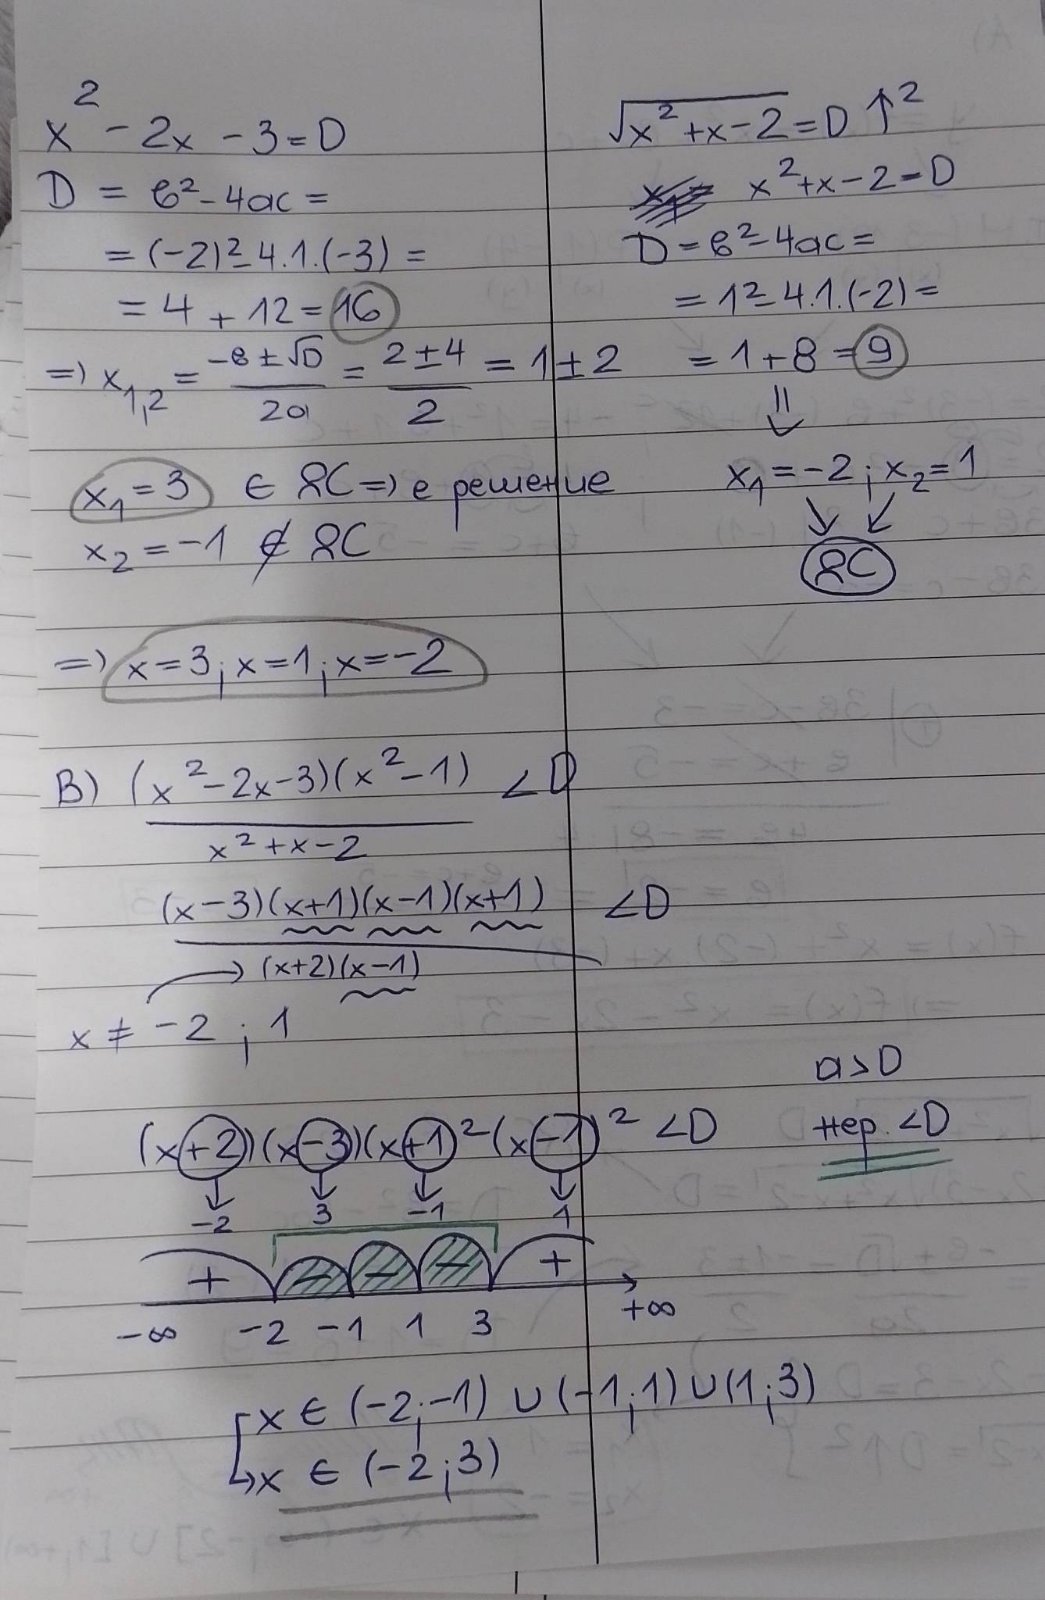 x² - 2x - 3 = 0
D = b² - 4ac =
= (-2)² - 4.1.(-3) =
= 4 + 12 = 16
=> x₁,₂ = (-b ± √D)/2a = (2 ± 4)/2 = 1 ± 2
x₁ = 3 ∈ ДС => е решение
x₂ = -1 ∉ ДС
=> x = 3; x = 1; x = -2
√(x² + x - 2) = 0 ↑²
x² + x - 2 = 0
D = b² - 4ac =
= 1² - 4.1.(-2) =
= 1 + 8 = 9
x₁ = -2; x₂ = 1
ДС
B) (x² - 2x - 3)(x² - 1) < 0
x² + x - 2
(x - 3)(x + 1)(x - 1)(x + 1) < 0
→ (x + 2)(x - 1)
x ≠ -2; 1
a > 0
(x + 2)(x - 3)(x + 1)²(x - 1)² < 0
нер. < 0
-2 3 -1 1
+ - - - +
-∞ -2 -1 1 3 +∞
x ∈ (-2; -1) ∪ (-1; 1) ∪ (1; 3)
x ∈ (-2; 3)